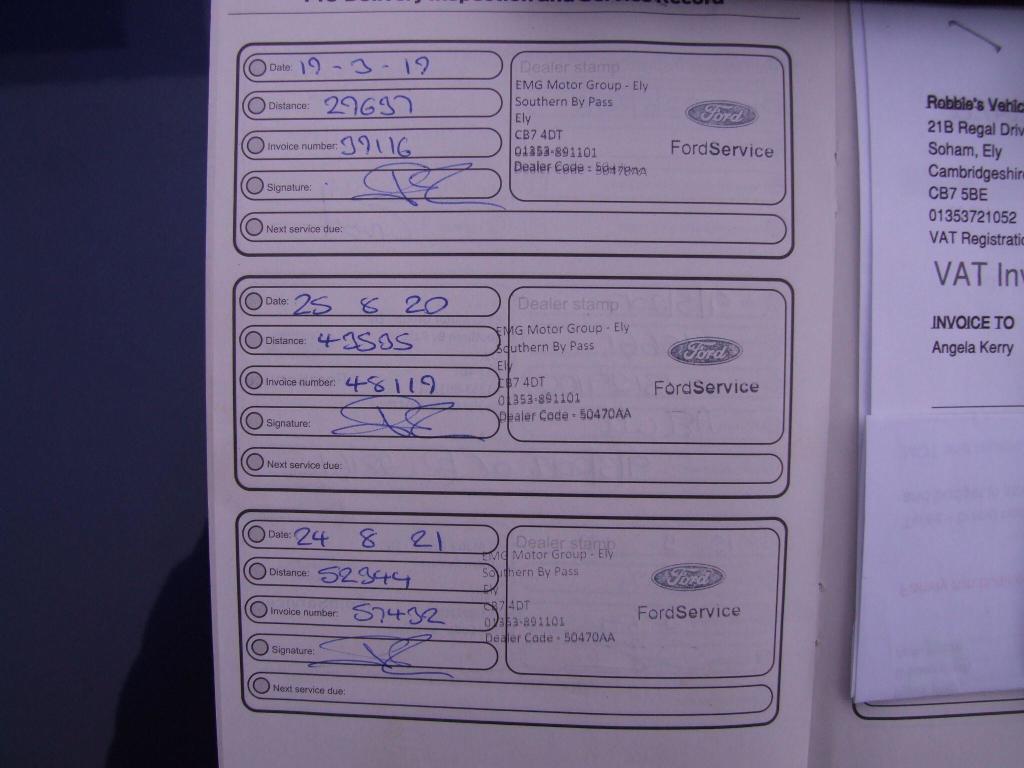 Pre Delivery Inspection and Service Record
Date: 19 - 3 - 19
Distance: 29637
Invoice number: 39116
Signature:
Next service due:
Dealer stamp
EMG Motor Group - Ely
Southern By Pass
Ely
CB7 4DT
01353-891101
Dealer Code - 50470AA
Ford
FordService
Date: 25 8 20
Distance: 43535
Invoice number: 48119
Signature:
Next service due:
Dealer stamp
EMG Motor Group - Ely
Southern By Pass
Ely
CB7 4DT
01353-891101
Dealer Code - 50470AA
Ford
FordService
Date: 24 8 21
Distance: 52344
Invoice number: 57432
Signature:
Next service due:
Dealer stamp
EMG Motor Group - Ely
Southern By Pass
Ely
CB7 4DT
01353-891101
Dealer Code - 50470AA
Ford
FordService
Robbie's Vehic
21B Regal Driv
Soham, Ely
Cambridgeshir
CB7 5BE
01353721052
VAT Registratio
VAT Inv
INVOICE TO
Angela Kerry